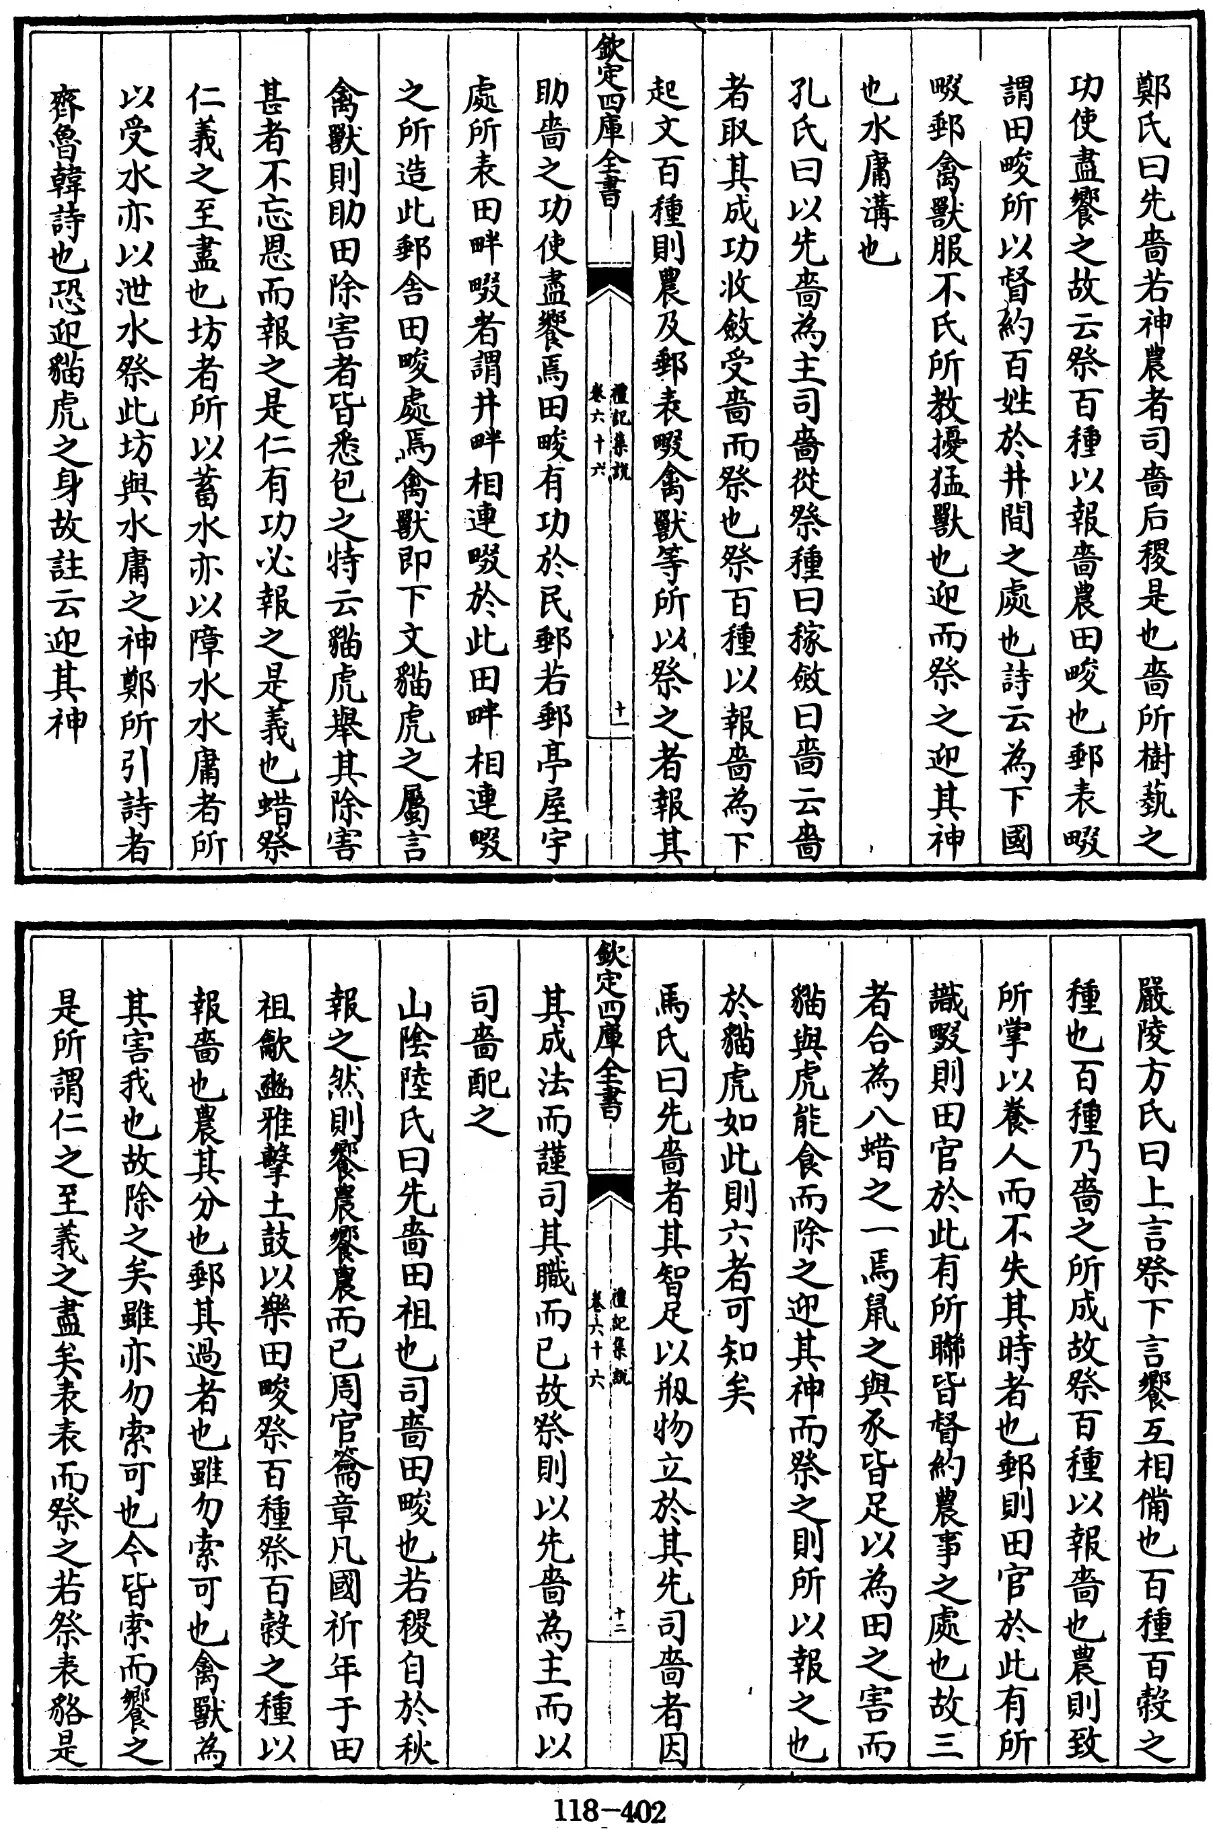 鄭氏曰先嗇若神農者司嗇后稷是也嗇所樹蓺之
功使盡饗之故云祭百種以報嗇農田畯也郵表畷
謂田畯所以督約百姓於井間之處也詩云為下國
畷郵禽獸服不氏所教擾猛獸也迎而祭之迎其神
也水庸溝也
孔氏曰以先嗇為主司嗇從祭種曰稼斂曰嗇云嗇
者取其成功收斂受嗇而祭也祭百種以報嗇為下
起文百種則農及郵表畷禽獸等所以祭之者報其
欽定四庫全書
禮記集説
卷六十六
十一
助嗇之功使盡饗焉田畯有功於民郵若郵亭屋宇
處所表田畔畷者謂井畔相連畷於此田畔相連畷
之所造此郵舍田畯處焉禽獸即下文貓虎之屬言
禽獸則助田除害者皆悉包之特云貓虎舉其除害
甚者不忘恩而報之是仁有功必報之是義也蜡祭
仁義之至盡也坊者所以蓄水亦以障水水庸者所
以受水亦以泄水祭此坊與水庸之神鄭所引詩者
齊魯韓詩也恐迎貓虎之身故註云迎其神
嚴陵方氏曰上言祭下言饗互相備也百種百穀之
種也百種乃嗇之所成故祭百種以報嗇也農則致
所掌以養人而不失其時者也郵則田官於此有所
識畷則田官於此有所聯皆督約農事之處也故三
者合為八蜡之一焉鼠之與豕皆足以為田之害而
貓與虎能食而除之迎其神而祭之則所以報之也
於貓虎如此則六者可知矣
馬氏曰先嗇者其智足以刱物立於其先司嗇者因
欽定四庫全書
禮記集説
卷六十六
十二
其成法而謹司其職而已故祭則以先嗇為主而以
司嗇配之
山陰陸氏曰先嗇田祖也司嗇田畯也若稷自於秋
報之然則饗農饗農而已周官籥章凡國祈年于田
祖龡豳雅擊土鼓以樂田畯祭百種祭百穀之種以
報嗇也農其分也郵其過者也雖勿索可也禽獸為
其害我也故除之矣雖亦勿索可也今皆索而饗之
是所謂仁之至義之盡矣表表而祭之若祭表貉是
118-402